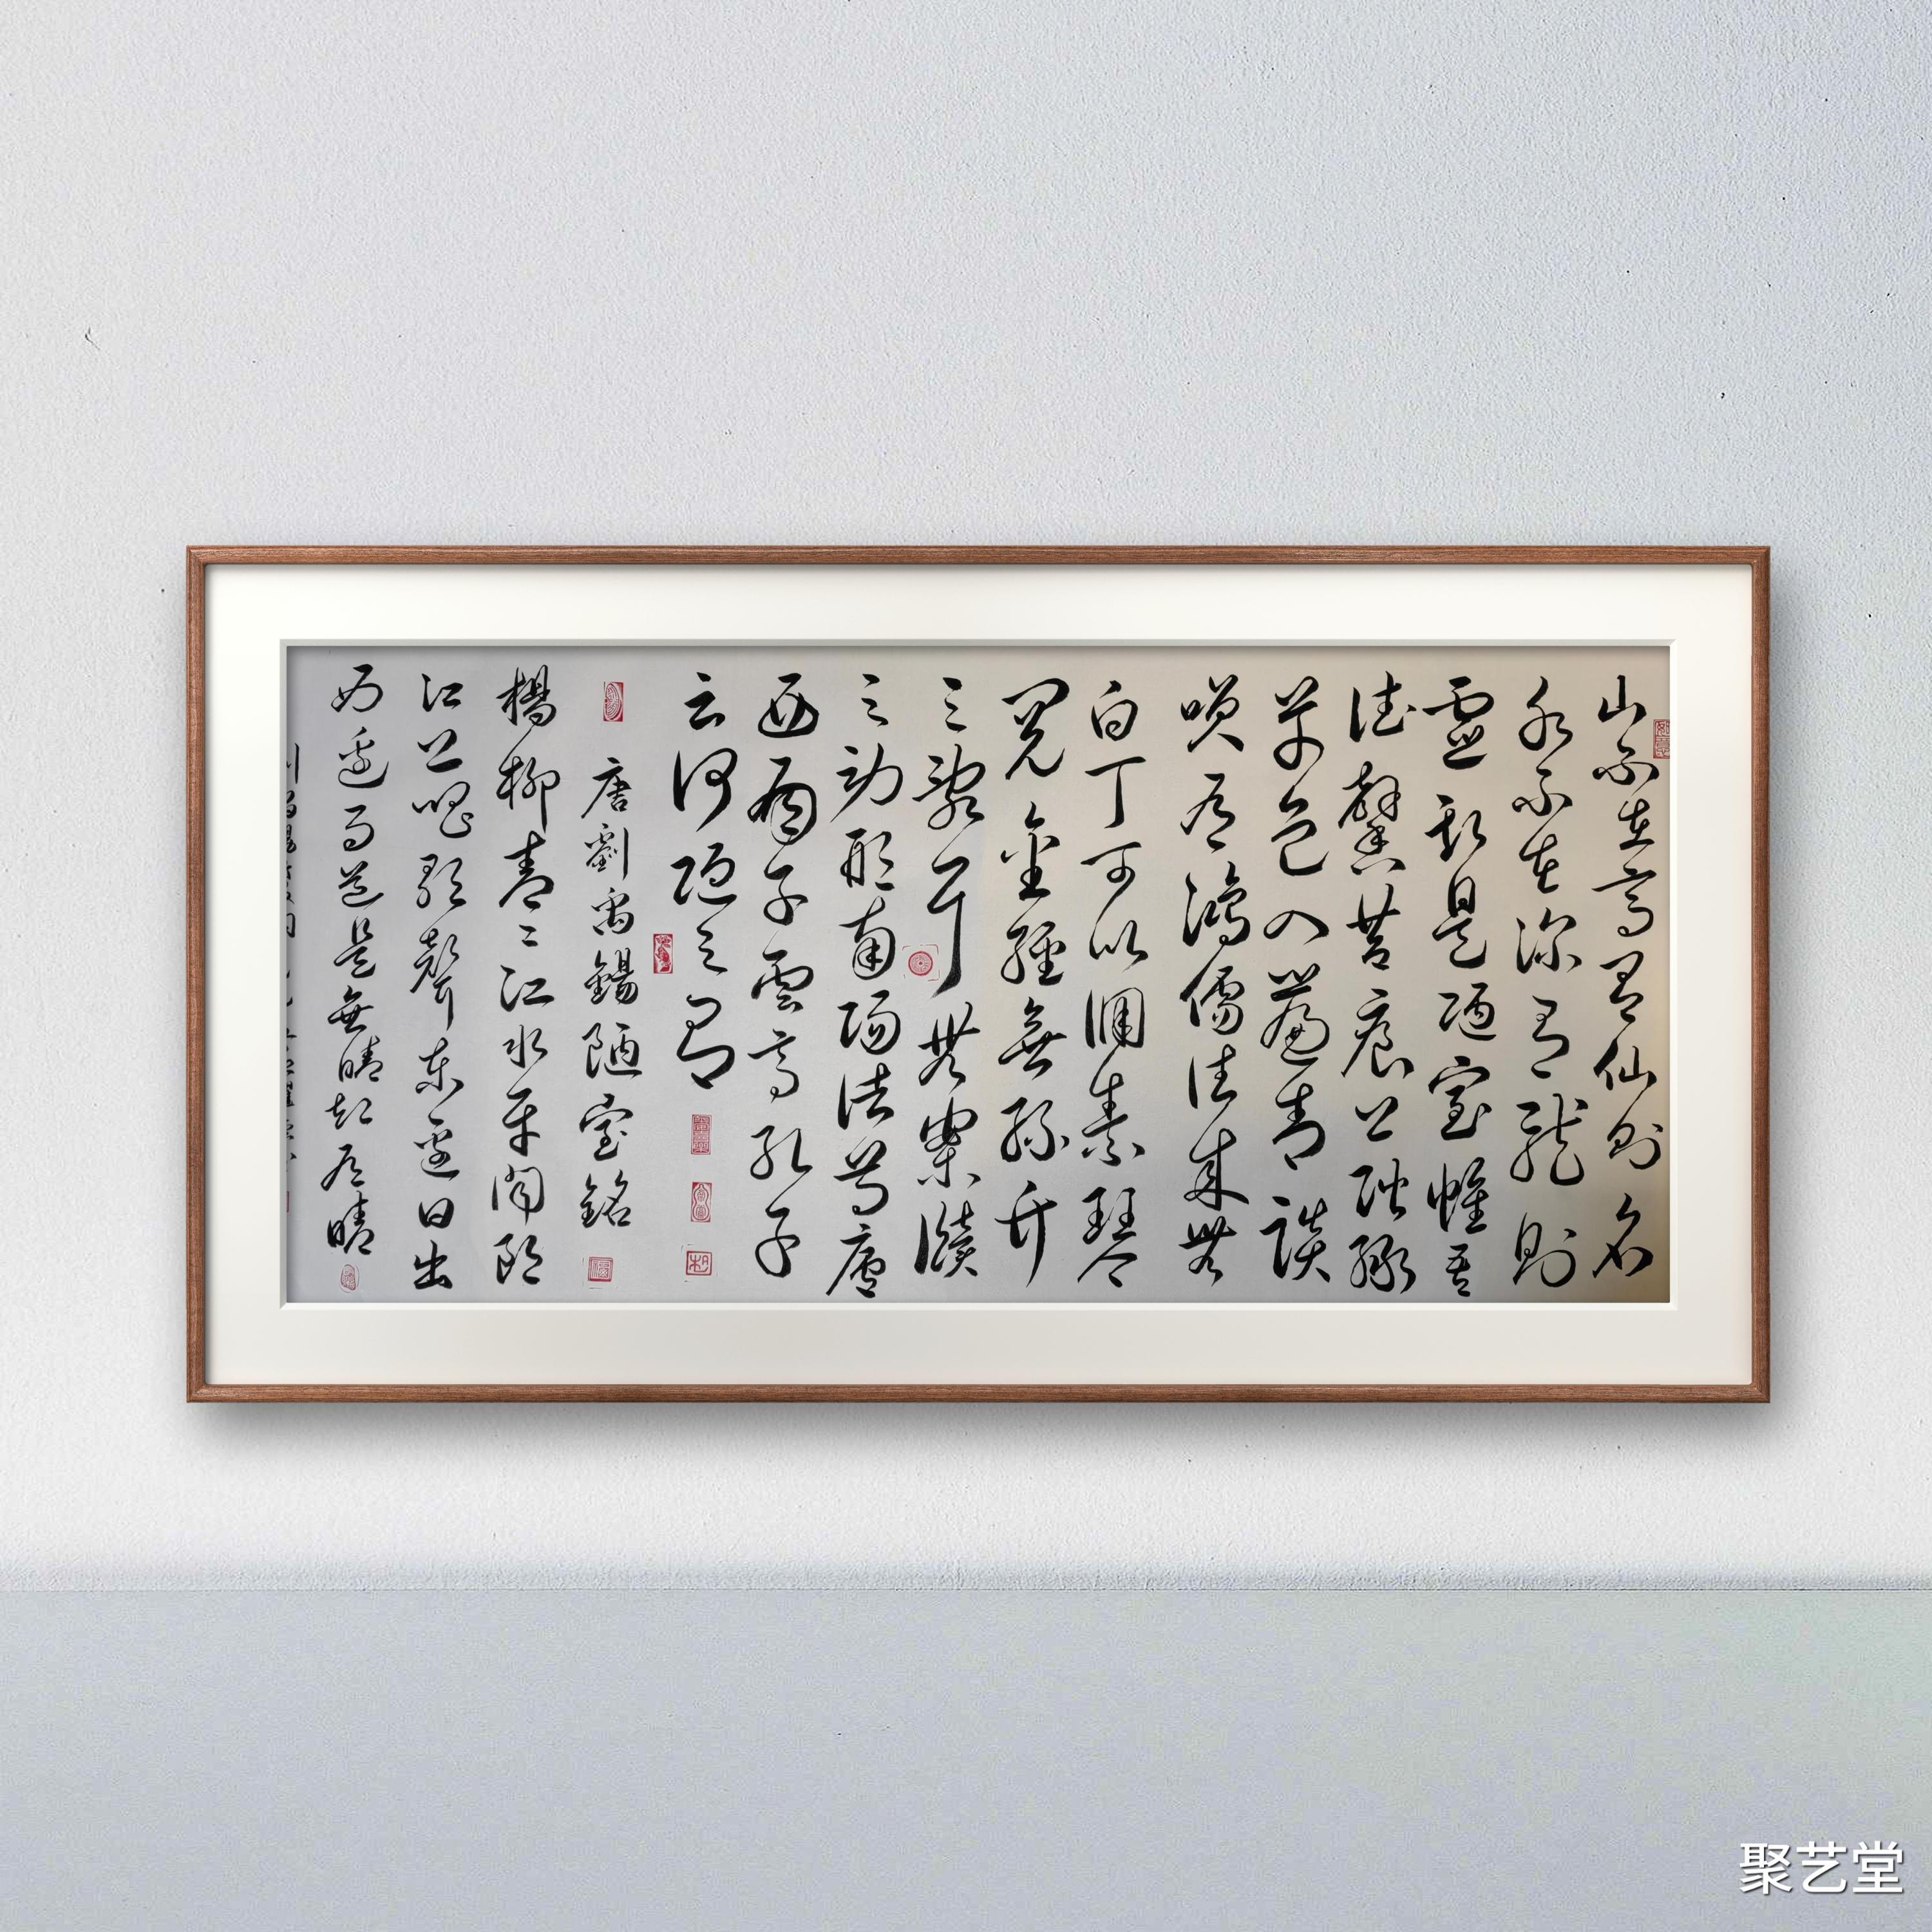 山不在高有仙則名
水不在深有龍則
靈斯是陋室惟吾
德馨苔痕上階綠
草色入簾青談
笑有鴻儒往來無
白丁可以調素琴
閱金經無絲竹
之亂耳無案牘
之勞形南陽諸葛廬
西蜀子雲亭孔子
云何陋之有
唐劉禹錫陋室銘
楊柳青々江水平聞郎
江上唱歌聲東邊日出
西邊雨道是無晴却有晴
聚艺堂